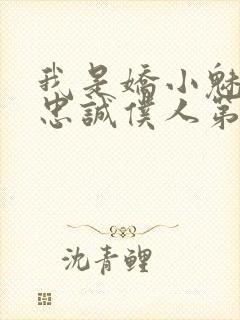 我是嬌小魅
忠誠僕人第
沈青鯉